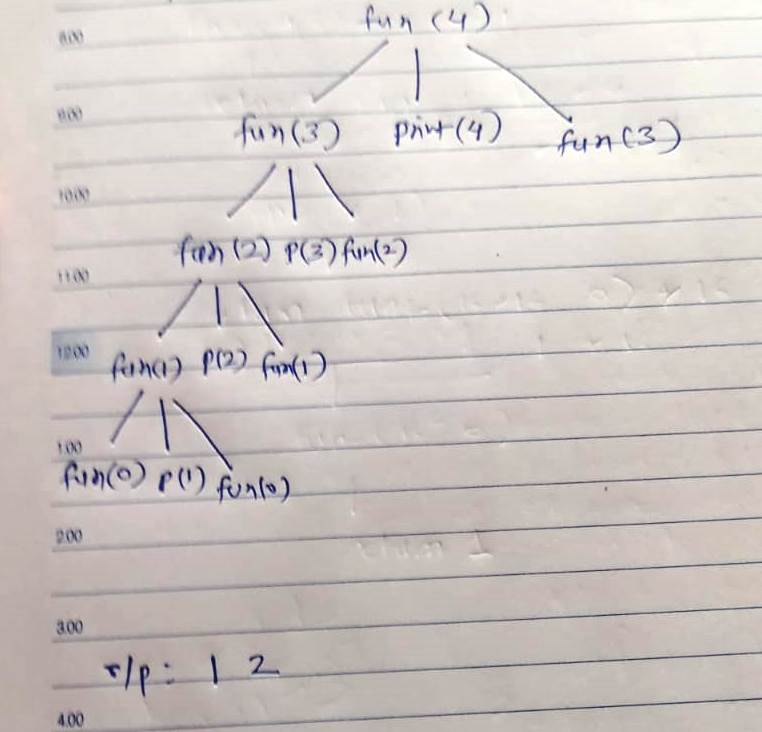 8.00
fun (4)
9.00
fun(3) print(4) fun(3)
10.00
fun(2) P(3) fun(2)
11.00
12.00
fun(1) P(2) fun(1)
1.00
fun(0) P(1) fun(0)
2.00
3.00
o/p: 1 2
4.00